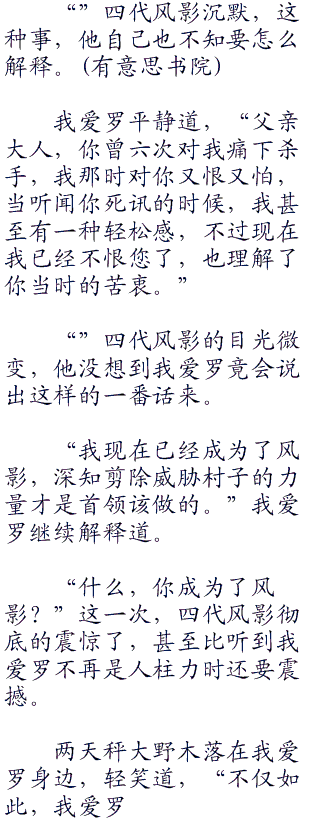 “”四代风影沉默，这
种事，他自己也不知要怎么
解释。(有意思书院)
我爱罗平静道，“父亲
大人，你曾六次对我痛下杀
手，我那时对你又恨又怕，
当听闻你死讯的时候，我甚
至有一种轻松感，不过现在
我已经不恨您了，也理解了
你当时的苦衷。”
“”四代风影的目光微
变，他没想到我爱罗竟会说
出这样的一番话来。
“我现在已经成为了风
影，深知剪除威胁村子的力
量才是首领该做的。”我爱
罗继续解释道。
“什么，你成为了风
影？”这一次，四代风影彻
底的震惊了，甚至比听到我
爱罗不再是人柱力时还要震
撼。
两天秤大野木落在我爱
罗身边，轻笑道，“不仅如
此，我爱罗